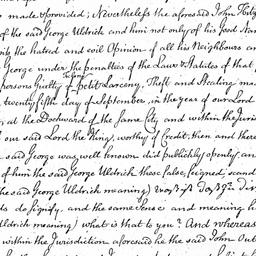 made & provided; Nevertheless the aforesaid John
of the said George Uldrich and him not only of his good
the hatred and evil Opinion of all his Neighbours an
George under the penalties of the Laws & Statutes of that
persons Guilty of Petit Larceny, Theft and Stealing ma
twenty fifth day of September, in the year of our Lord
at the Dockward of the same City and within the Juris
our said Lord the King, worthy of Credit, then and there
said George was well known did publickly openly an
of him the said George Uldrich these false, feigned, scand
the said George Uldrich meaning)
do signify, and the same Sense and meaning, h
Uldrich meaning) what is that to you? And whereas
within the Jurisdiction aforesaid he the said John Out